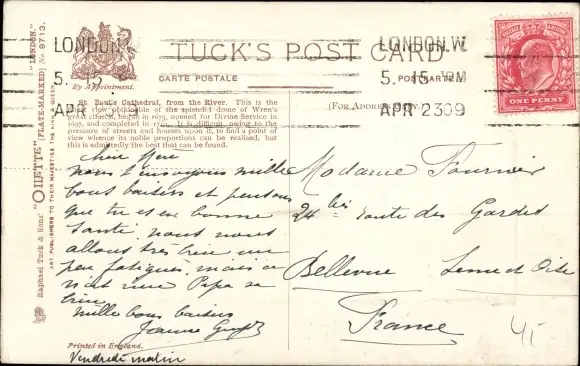 LONDON.W
5. 15 PM
APR 23 09
TUCK'S POST CARD
CARTE POSTALE
POSTKARTE
By Appointment.
(FOR ADDRESS ONLY.)
ONE PENNY
Raphael Tuck & Sons' "OILETTE" (PLATE-MARKED) No 9713. "LONDON."
ART PUBLISHERS TO THEIR MAJESTIES THE KING & QUEEN.
St. Paul's Cathedral, from the River. This is the
best view obtainable of the splendid dome of Wren's
great church, begun in 1675, opened for Divine Service in
1697, and completed in 1710. It is difficult, owing to the
pressure of streets and houses upon it, to find a point of
view whence its noble proportions can be realised, but
this is admittedly the best that can be found.
Chère Mère
nous t'envoyons mille
bons baisers et pensons
que tu es en bonne
santé nous nous
allons très bien un
peu fatigués, mais ce
n'est rien Papa va
bien
Mille bons baisers
Jeanne
Vendredi matin
Printed in England.
Madame Fournier
24 bis route des Gardes
Bellevue Seine et Oise
France